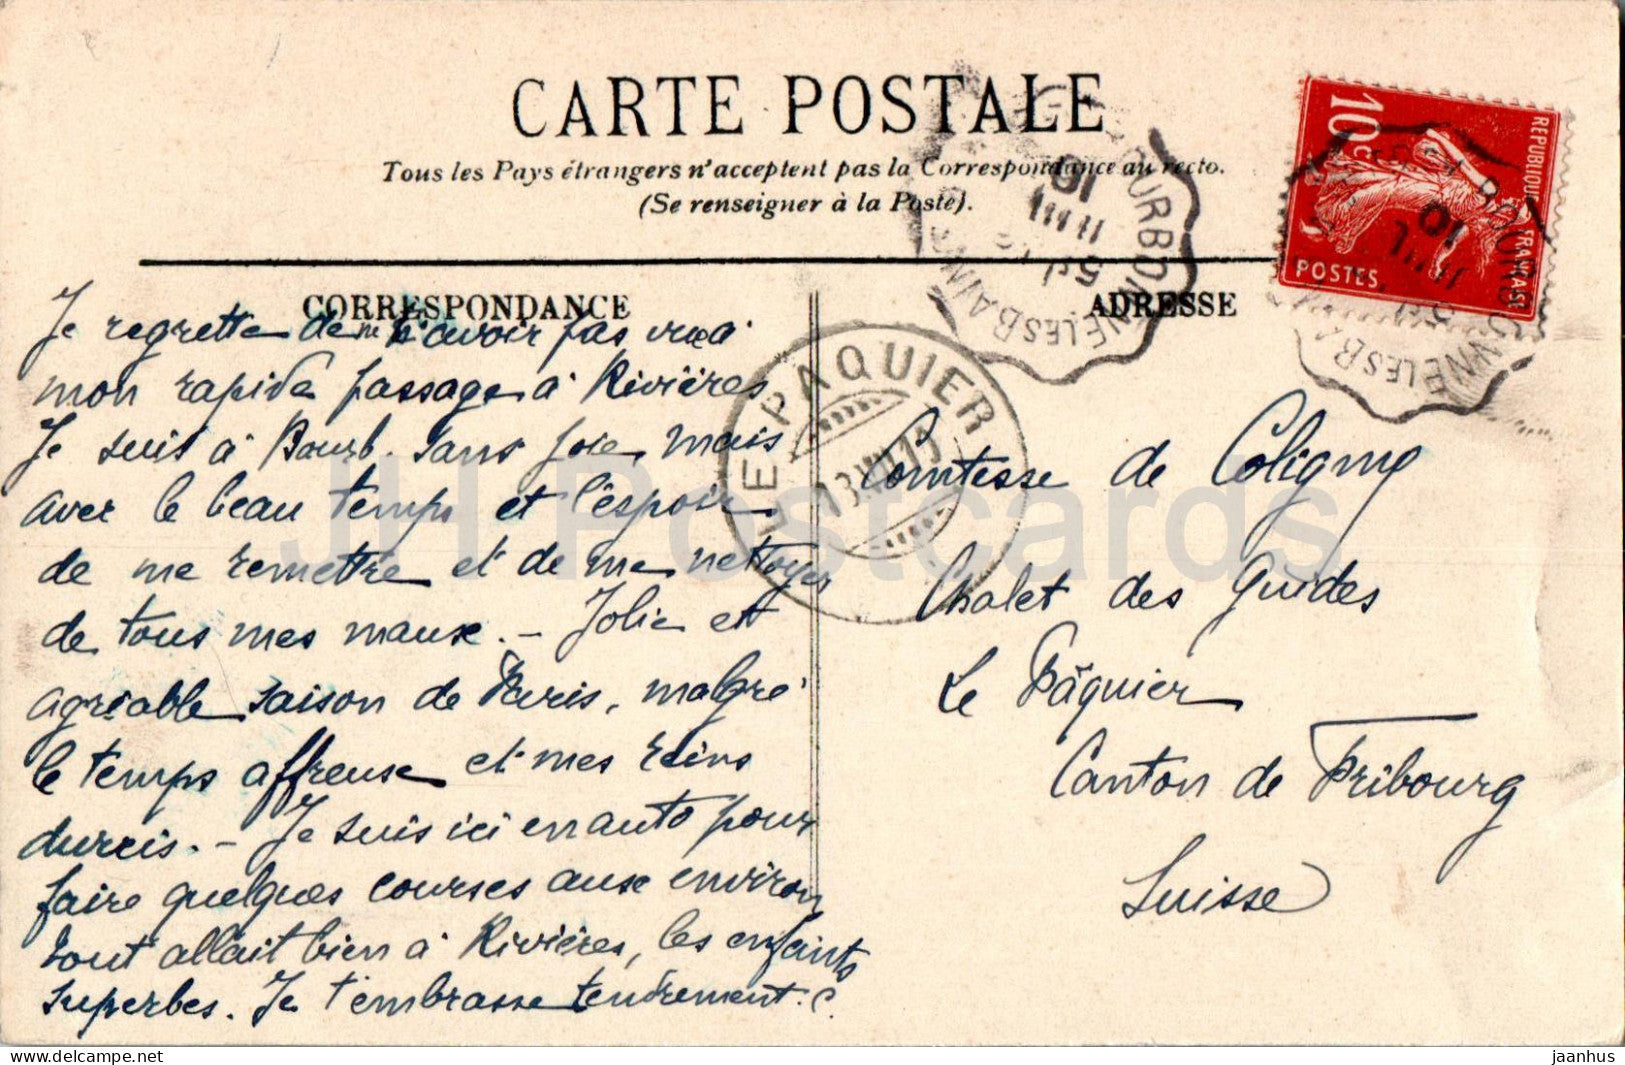 CARTE POSTALE
Tous les Pays étrangers n'acceptent pas la Correspondance au recto.
(Se renseigner à la Poste).
CORRESPONDANCE
Je regrette de ne t'avoir pas vu à
mon rapide passage à Rivières
Je suis à Bourb. sans joie, mais
avec le beau temps et l'espoir
de me remettre et de me nettoyer
de tous mes maux. - Jolie et
agréable saison de Paris, malgré
le temps affreux et mes reins
durcis. - Je suis ici en auto pour
faire quelques courses aux environ
tout allait bien à Rivières, les enfants
superbes. Je t'embrasse tendrement. C
ADRESSE
Comtesse de Coligny
Chalet des Guides
Le Pâquier
Canton de Fribourg
Suisse
REPUBLIQUE FRANÇAISE
10c
POSTES
BOURBONNE LES BAINS
10
BOURBONNE LES BAINS
10
LE PAQUIER
13.VII.11
JH Postcards
www.delcampe.net
jaanhus